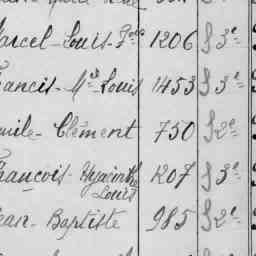 Marcel-Louis-Jos 1206 § 3e
Francis-Mie Louis 1453 § 3e
Émile-Clément 750 § 2e
François-Hyacinthe 1207 § 3e
Louis
Jean-Baptiste 985 § 2e